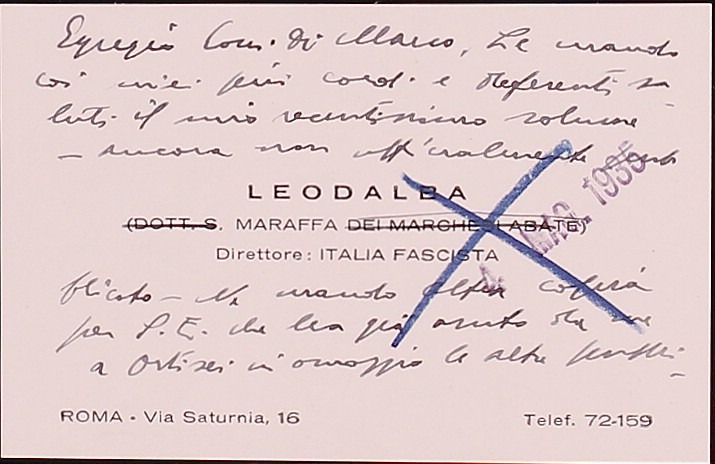 Egregio Com. Di Marco, Le mando
coi miei più cord. e deferenti sa
luti il mio recentissimo volume
– ancora non ufficialmente pub
LEODALBA
(DOTT. S. MARAFFA DEI MARCHESI ABATE)
MAG. 1935
Direttore: ITALIA FASCISTA
blicato – Ne mando altra copia
per S. E. che ha già avuto da me
a Ortisei in omaggio le altre pubbli-
ROMA - Via Saturnia, 16
Telef. 72-159